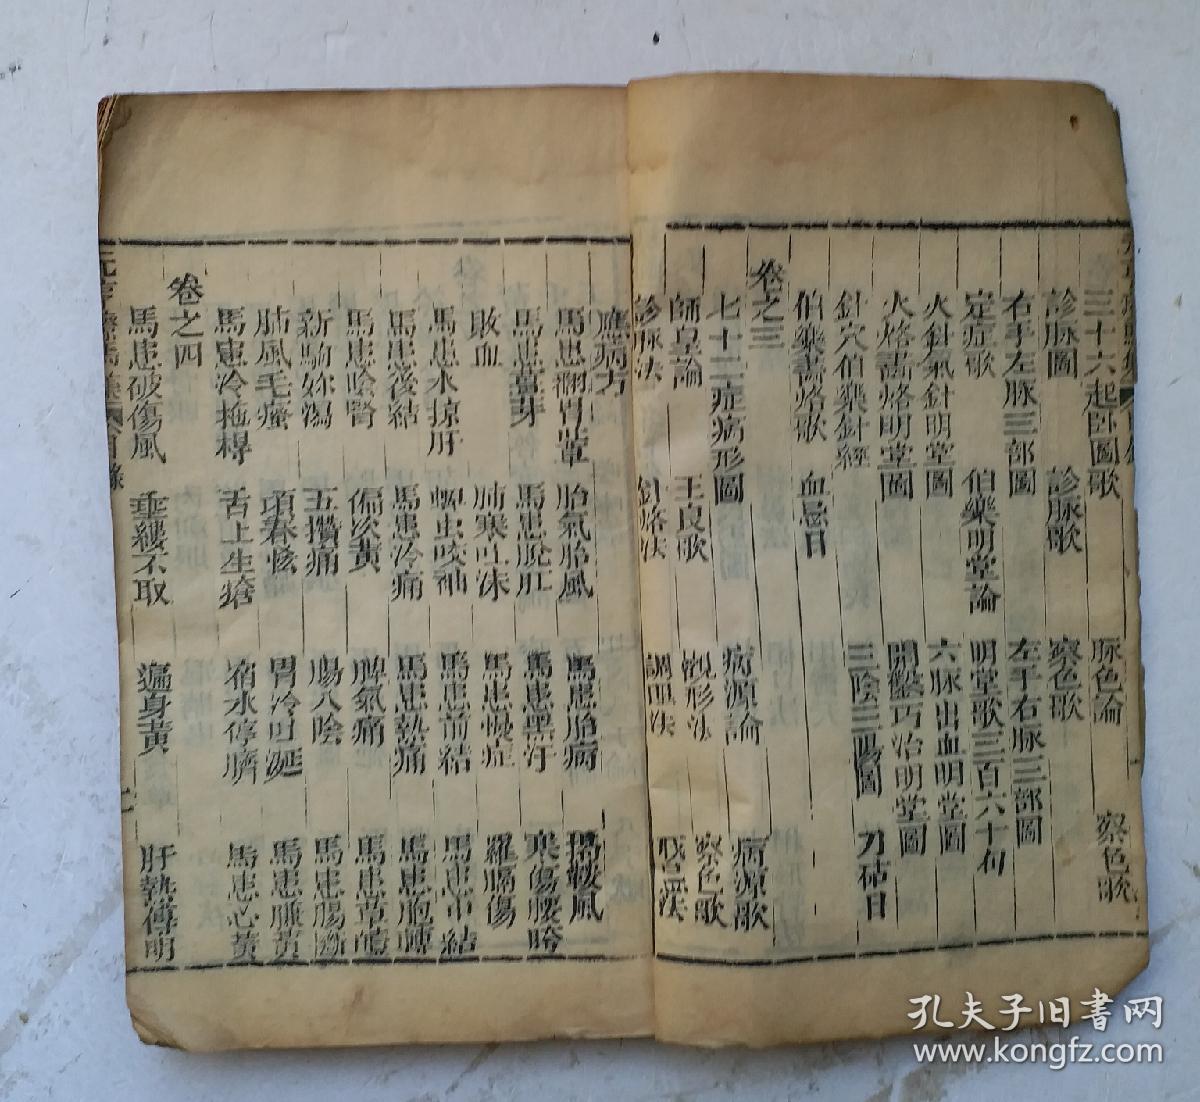 三十六起卧圖歌 脉色論 察色歌
診脉圖 診脉歌 察色歌
右手左脉三部圖 左手右脉三部圖
定症歌 伯樂明堂論 明堂歌三百六十句
火針氣針明堂圖 六脉出血明堂圖
火烙畵烙明堂圖 開鑿巧治明堂圖
針穴伯樂針經 三陰三陽圖 刀砧日
伯樂畵烙歌 血忌日
卷之三
七十二症病形圖 病源論 病源歌
師皇論 王良歌 觀形法 察色歌
診脉法 針烙法 調理法
應病方
馬患翻胃草 胎氣胎風 馬患胎病 揭鞍風
馬患薑芽 馬患脫肛 馬患黑汗 寒傷腰胯
敗血 肺寒吐沫 馬患慢症 羅膈傷
馬患水掠肝 蚰虫咬袖 馬患前結 馬患中結
馬患後結 馬患冷痛 馬患熱痛 馬患胞轉
馬患陰腎 偏次黄 脾氣痛 馬患草噎
新駒妳瀉 五攢痛 腸入陰 馬患腸斷
肺風毛瘙 項脊恡 胃冷吐涎 馬患膁黄
馬患冷拖桿 舌上生瘡 宿水停臍 馬患心黄
卷之四
馬患破傷風 垂縷不收 遍身黄 肝熱傳明
孔夫子旧书网
www.kongfz.com